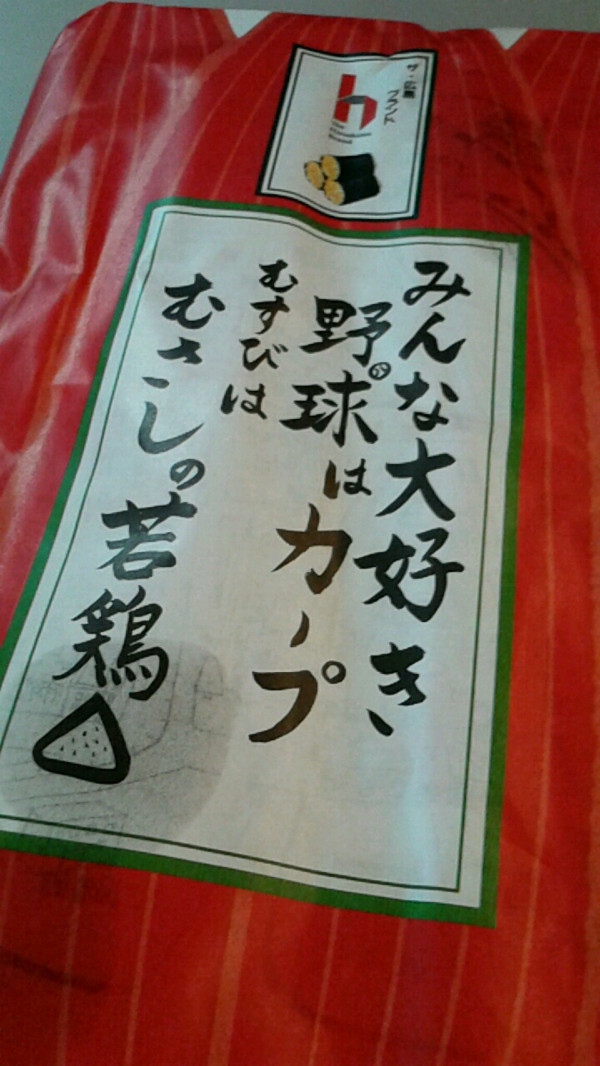 ザ・広島
ブランド
h
the
Hiroshima
Brand
みんな大好き
野球はカープ
むすびは
むさしの若鶏